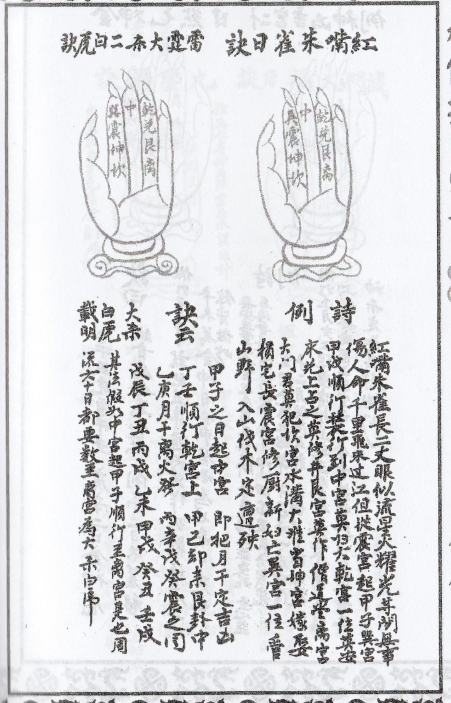 紅嘴朱雀日訣
雷霆大杀二白虎訣
乾兌艮离
中
巽震坤坎
乾兌艮离
中
巽震坤坎
詩例
紅嘴朱雀長二丈眼似流星火耀光等閑無事
傷人命千里飛來过江但從震宮起甲子巽宮
甲戌順行裝行到中宮莫归火乾宮一位莫安
床兌上占之莫修井艮宮莫作僧道堂离宮
大门君莫犯坎宮水溝大难當坤宮嫁娶
損宅長震宮修厨新妇亡巽宮一位管
山野入山伐木定遭殃
訣云
甲子之日起中宮 即把月干定吉凶
丁壬順行乾宮上 甲己却来艮卦中
乙庚月干离火發 丙辛戊癸震之同
大杀白虎載明
戊辰丁丑丙戌乙未甲戌癸丑壬戌
其法假如中宮起甲子順行至离宮是也周
流六十日都要数至离宮為大杀白虎